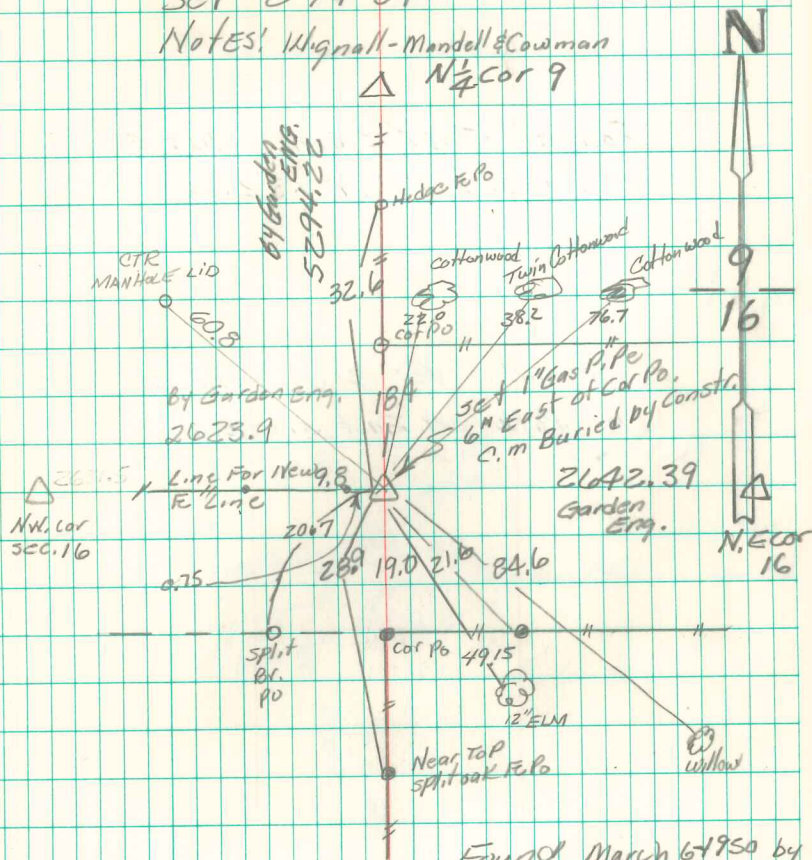 Notes! Wignall-Mandell & Cowman
N
N¼ Cor 9
64 Garden
ENG.
5294.22
Hedge Fe Po
CTR
MANHOLE LID
60.8
32.6
Cottonwood
22.0
Twin Cottonwood
38.2
Cottonwood
76.7
9
16
Cor Po
184
By Garden Eng.
2623.9
set 1" Gas Pipe
6" East of Cor Po.
C.m Buried by Constr.
2642.39
Garden
Eng.
Line For New
Fe Line
9.8
NW. cor
sec. 16
N.E cor
16
20.7
0.75
28.9
19.0
21.6
84.6
Split
Br.
Po
Cor Po
49.15
12" ELM
Near Top
split oak Fe Po
Willow
Found March 6-1950 by